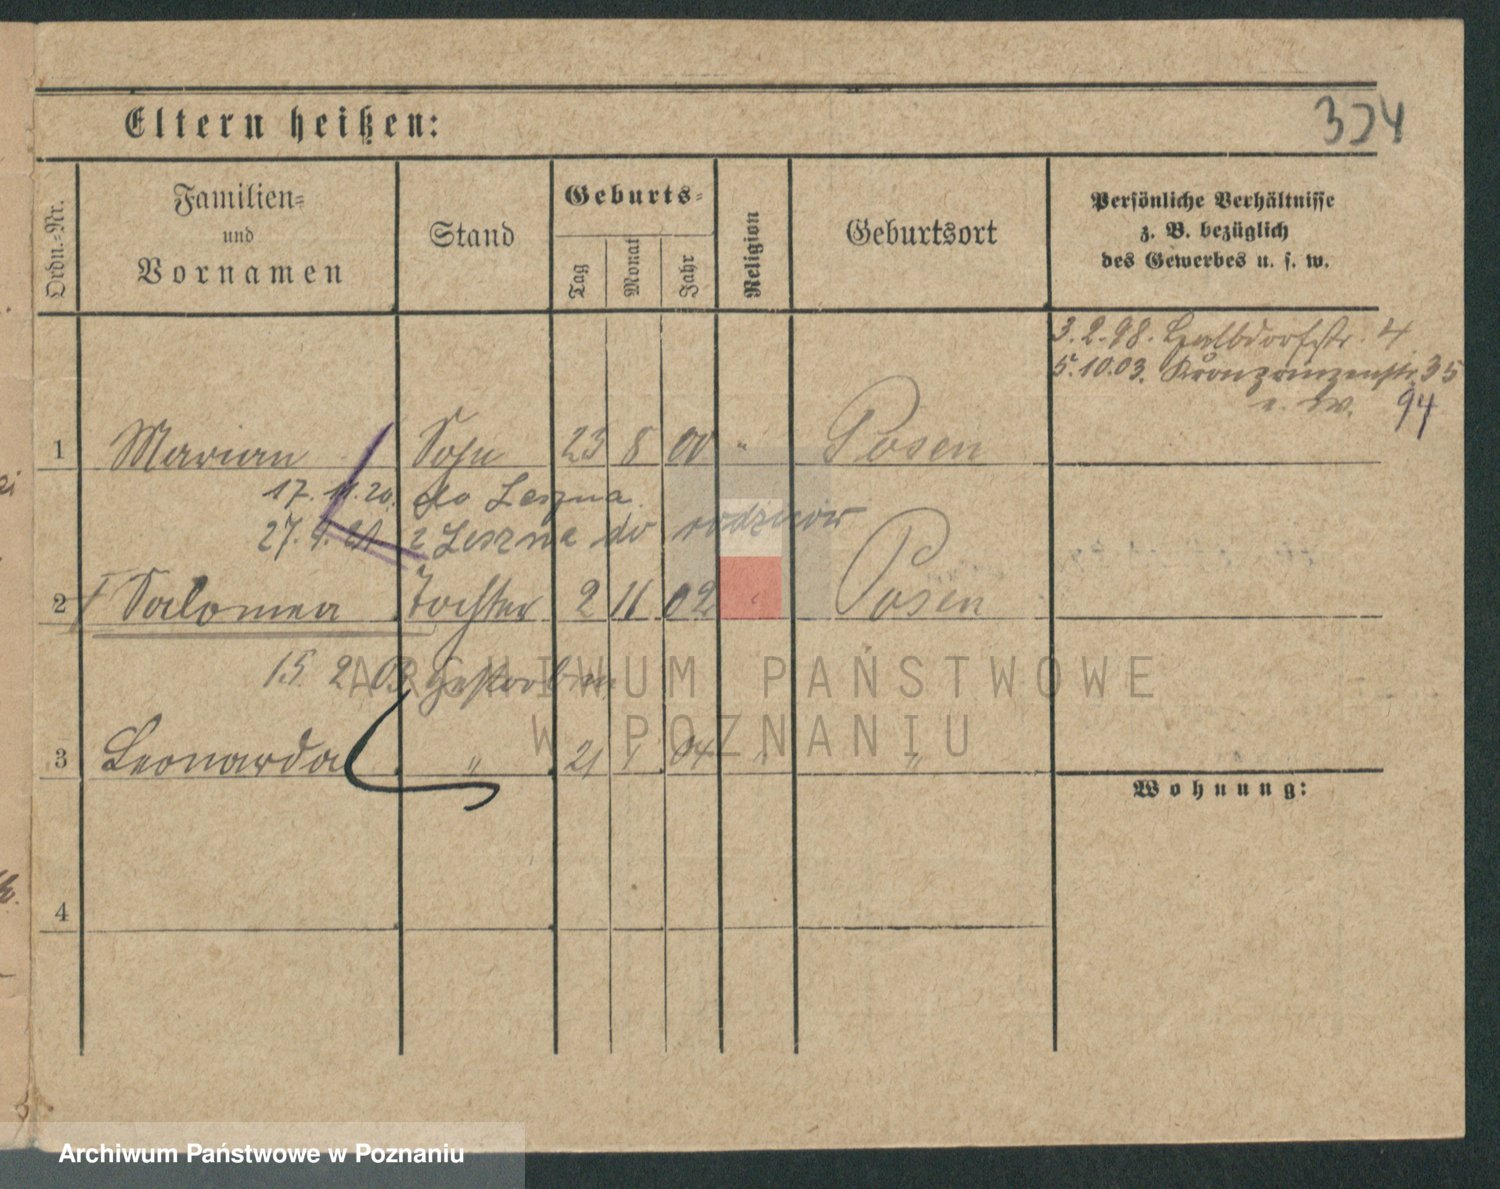 Eltern heißen:
354
Ordn.-Nr.
Familien-
und
Vornamen
Stand
Geburts-
Tag
Monat
Jahr
Religion
Geburtsort
Persönliche Verhältnisse
z. B. bezüglich
des Gewerbes u. s. w.
3.2.98. Halbdorfstr. 4
5.10.03. Kronprinzenstr. 35
94
1 Marian Sohn 23 8 00 " Posen
17. 11. 20. do Leszna
27. 9. 21 z Leszna do rodziców
2 † Salomea Tochter 2 11 02 " Posen
15. 2. 03 gestorben
3 Leonarda " 21 1 04 " "
Wohnung:
4
ARCHIWUM PAŃSTWOWE
W POZNANIU
Archiwum Państwowe w Poznaniu